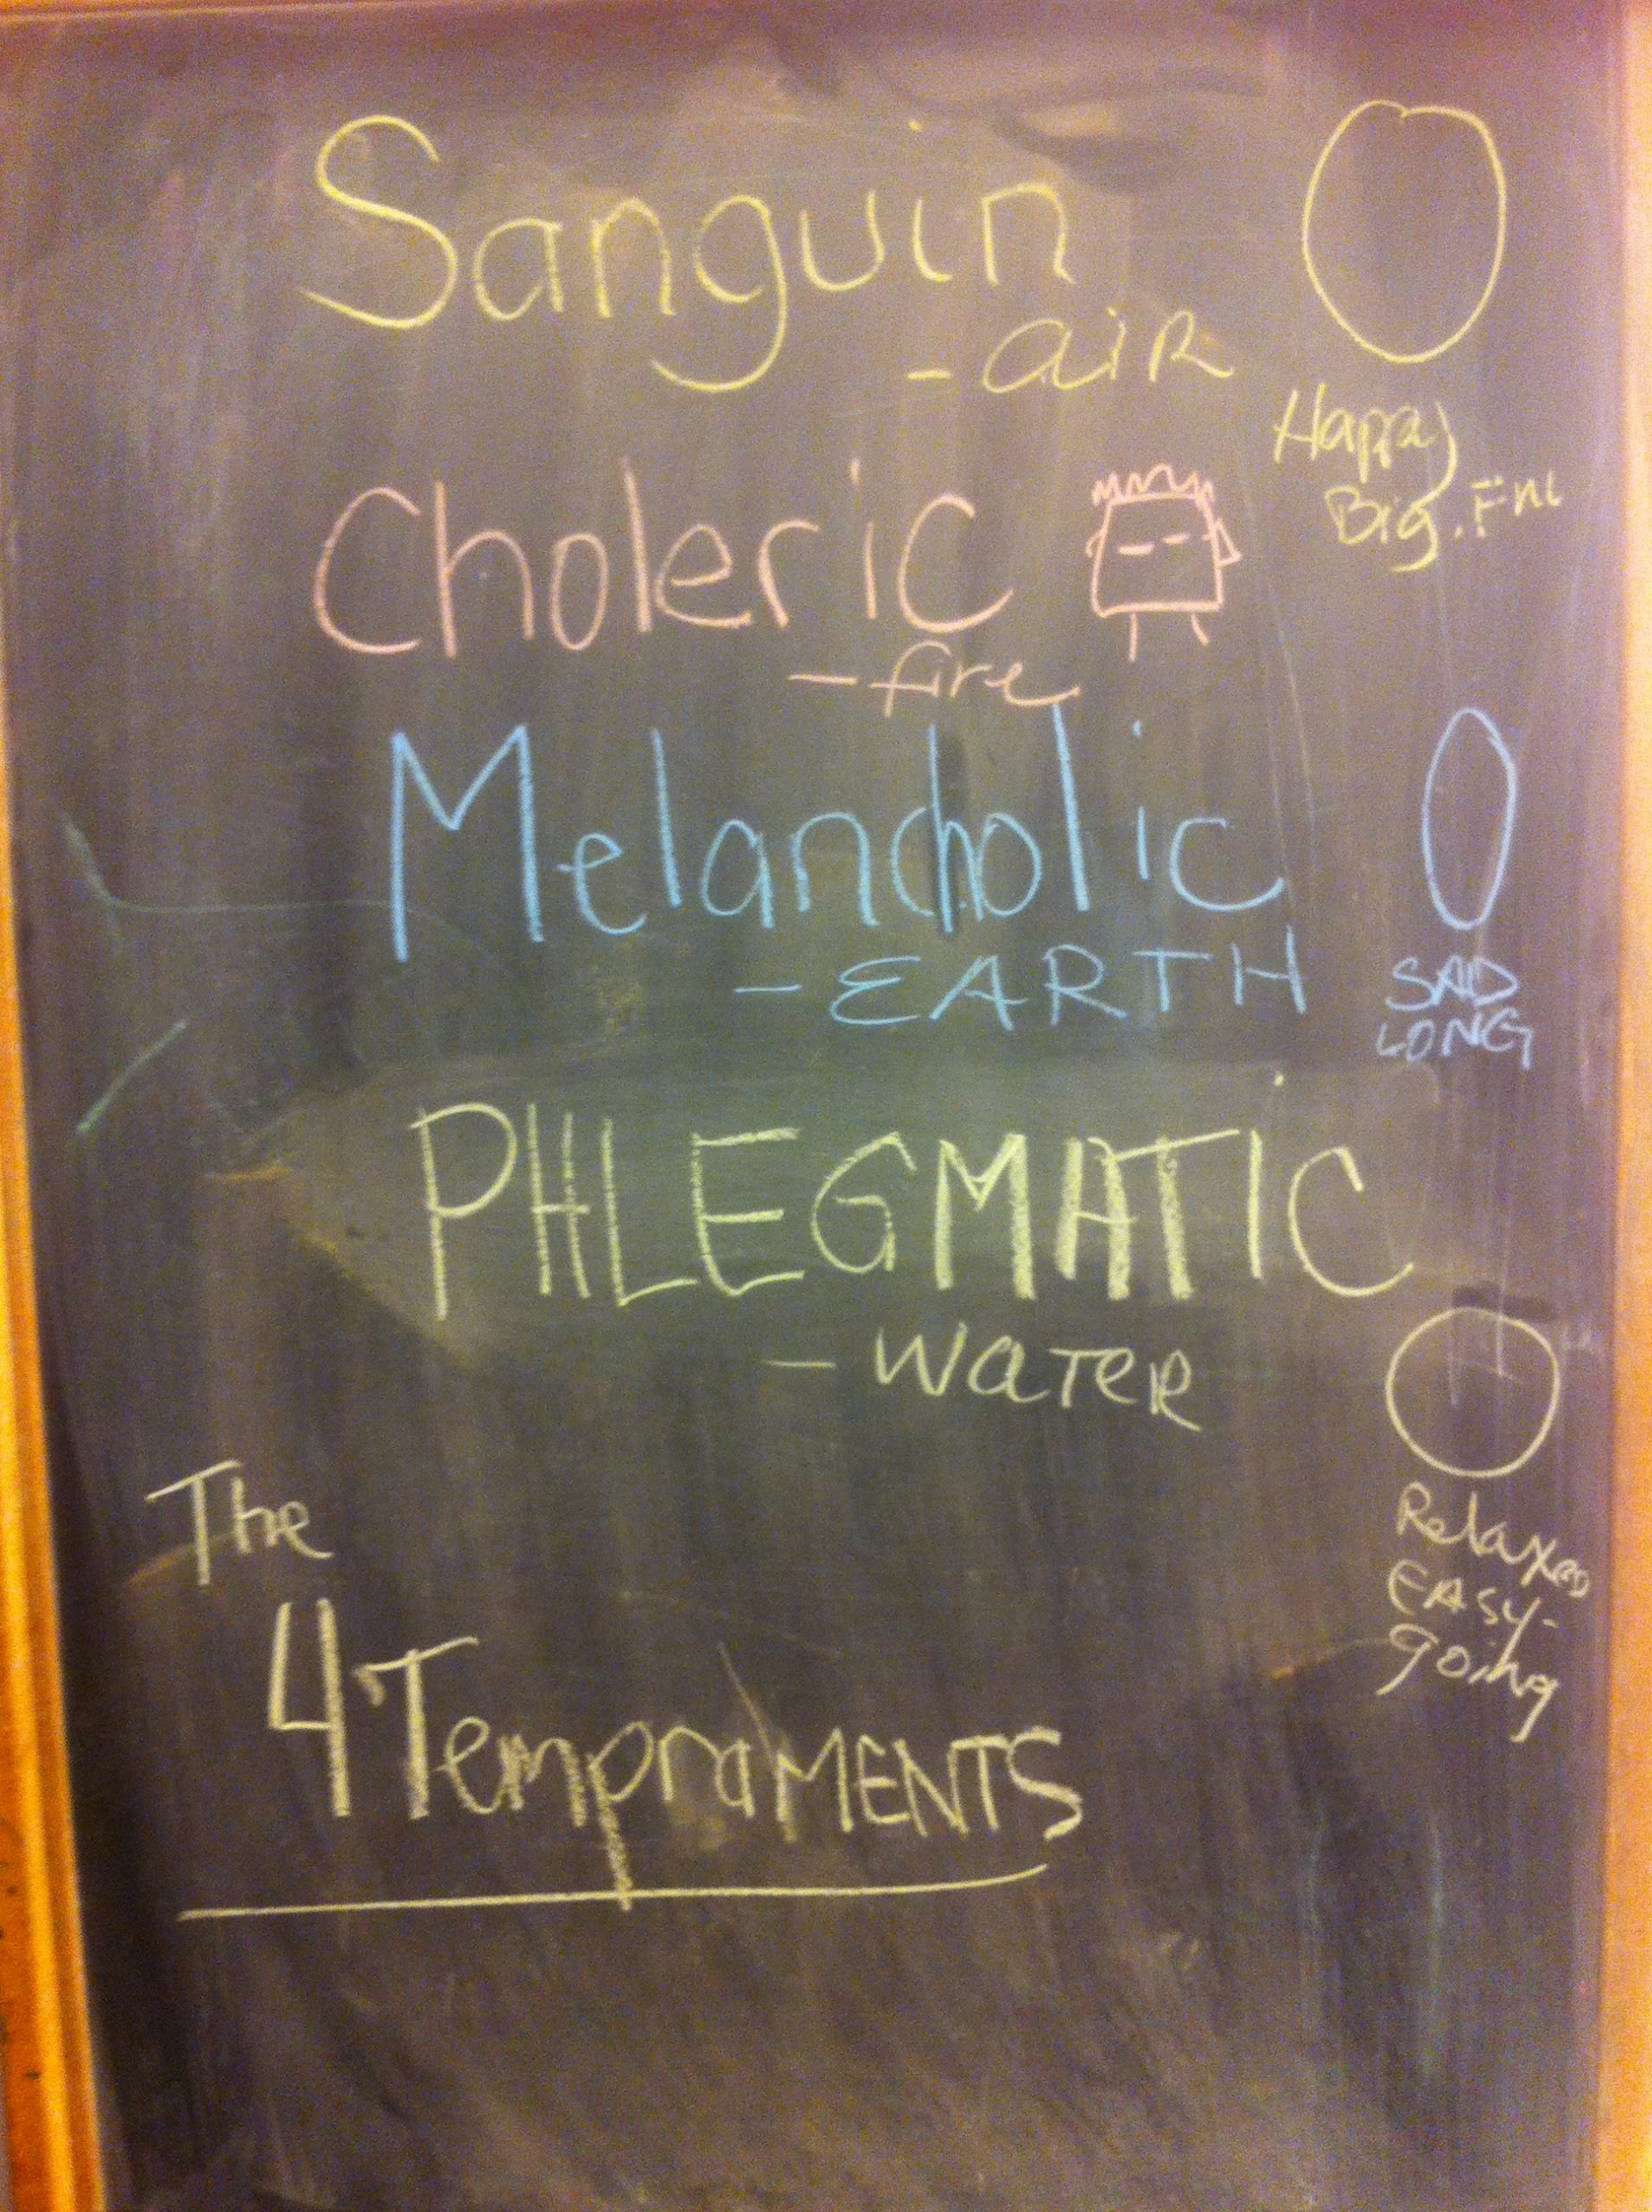 Sanguin
- aiR
Happy
Big.
Choleric
- fire
Melancholic
- EARTH
SAD
LONG
PHLEGMATiC
- WaTeR
Relaxed
EASY-
going
The
4 TempraMENTS